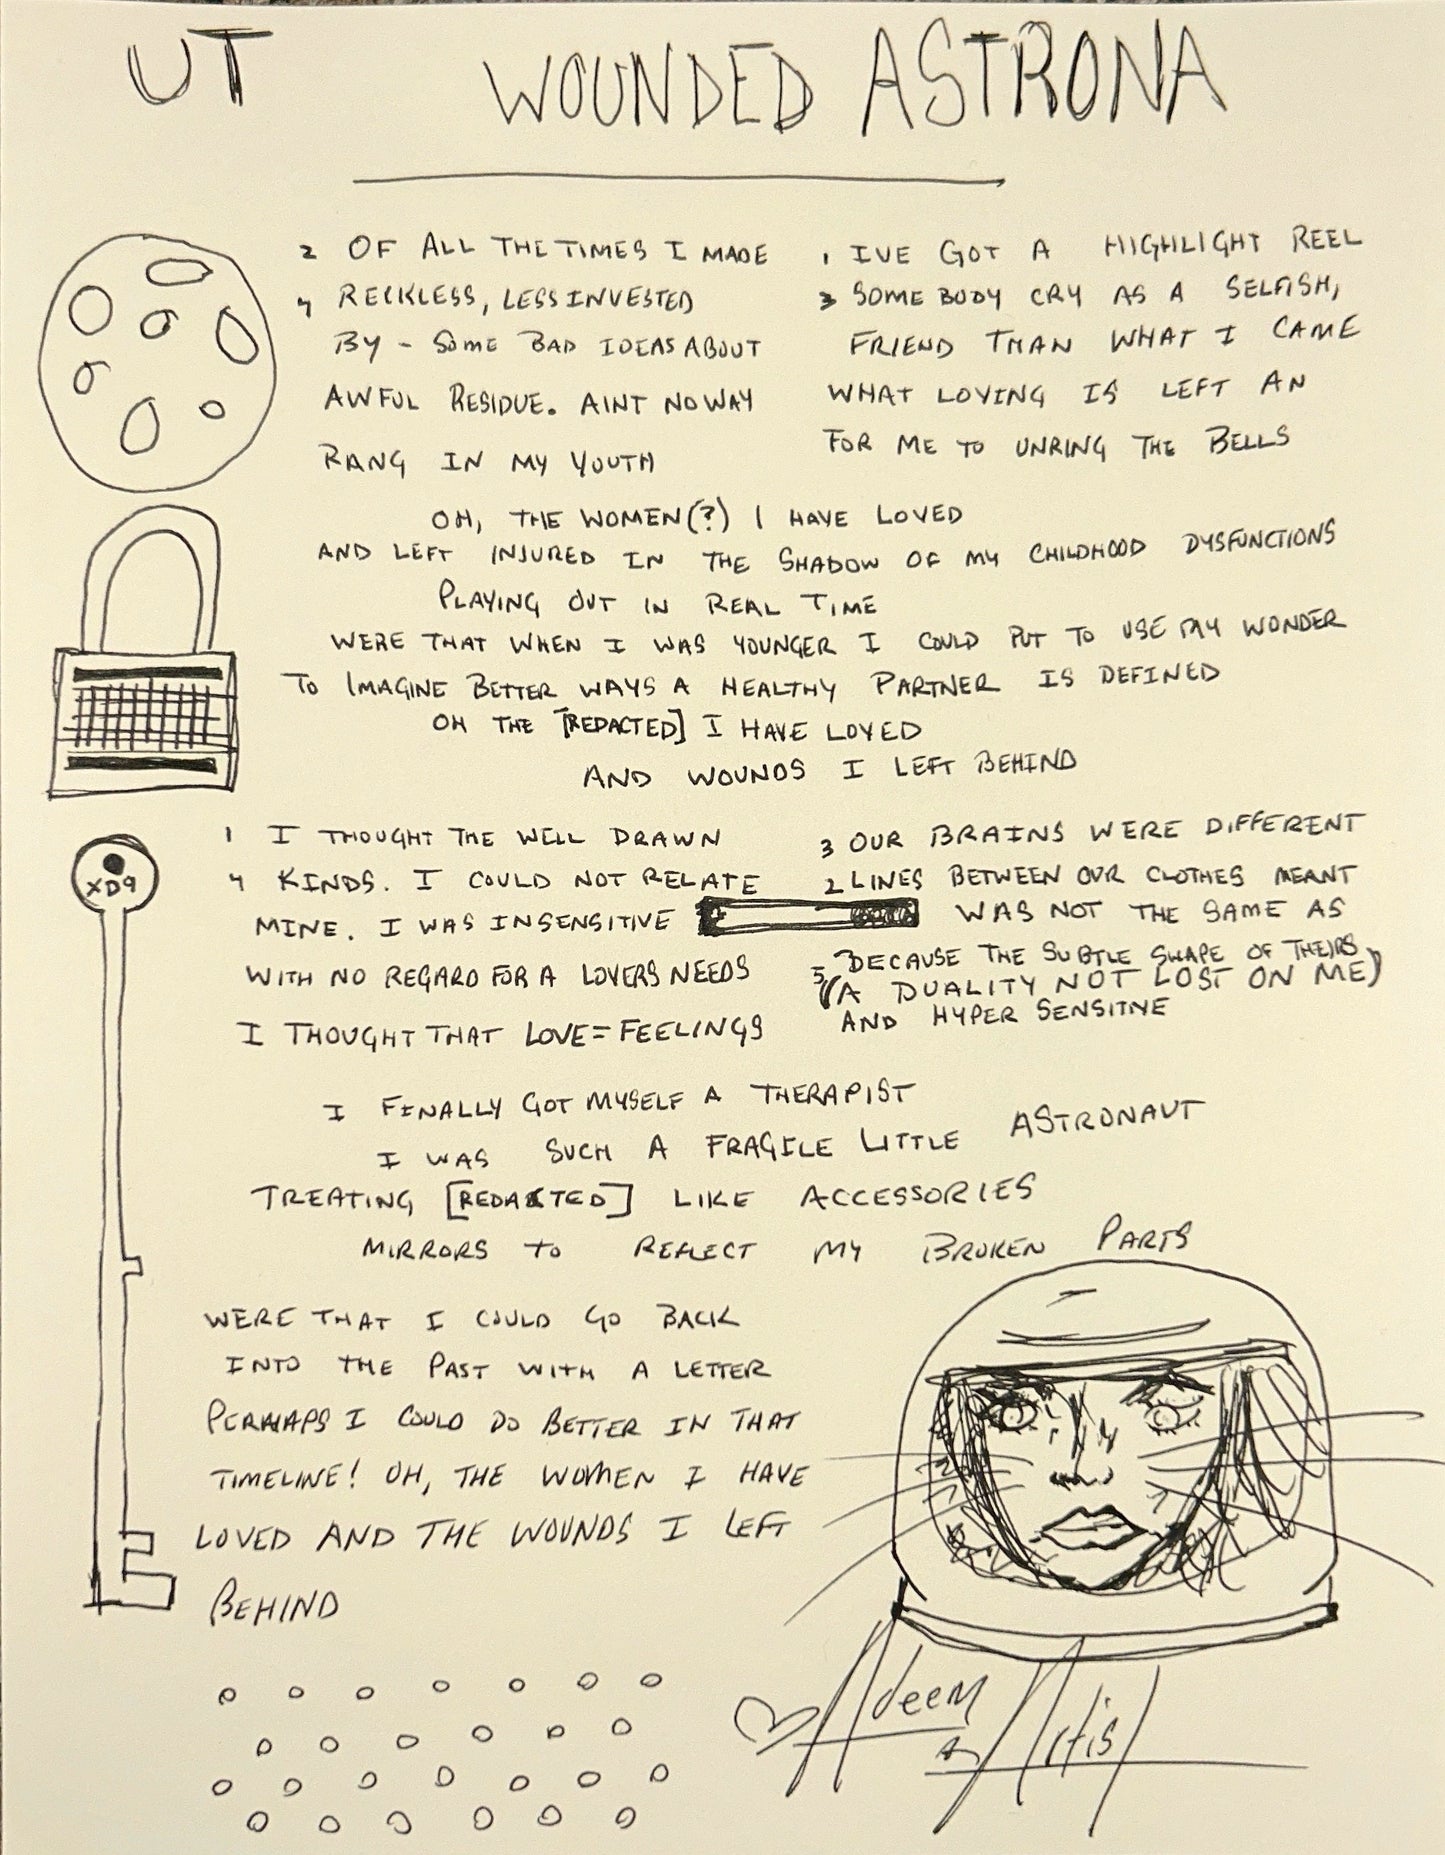 UT WOUNDED ASTRONA
2 OF ALL THE TIMES I MADE
4 RECKLESS, LESS INVESTED
BY - SOME BAD IDEAS ABOUT
AWFUL RESIDUE. AINT NO WAY
RANG IN MY YOUTH
1 IVE GOT A HIGHLIGHT REEL
3 SOMEBODY CRY AS A SELFISH,
FRIEND THAN WHAT I CAME
WHAT LOVING IS LEFT AN
FOR ME TO UNRING THE BELLS
OH, THE WOMEN(?) I HAVE LOVED
AND LEFT INJURED IN THE SHADOW OF MY CHILDHOOD DYSFUNCTIONS
PLAYING OUT IN REAL TIME
WERE THAT WHEN I WAS YOUNGER I COULD PUT TO USE MY WONDER
TO IMAGINE BETTER WAYS A HEALTHY PARTNER IS DEFINED
OH THE [REDACTED] I HAVE LOVED
AND WOUNDS I LEFT BEHIND
XD9
1 I THOUGHT THE WELL DRAWN
4 KINDS. I COULD NOT RELATE
MINE. I WAS INSENSITIVE
WITH NO REGARD FOR A LOVERS NEEDS
I THOUGHT THAT LOVE=FEELINGS
3 OUR BRAINS WERE DIFFERENT
2 LINES BETWEEN OUR CLOTHES MEANT
WAS NOT THE SAME AS
5 BECAUSE THE SUBTLE SHAPE OF THEIRS
(A DUALITY NOT LOST ON ME)
AND HYPER SENSITIVE
I FINALLY GOT MYSELF A THERAPIST
I WAS SUCH A FRAGILE LITTLE ASTRONAUT
TREATING [REDACTED] LIKE ACCESSORIES
MIRRORS TO REFLECT MY BROKEN PARTS
WERE THAT I COULD GO BACK
INTO THE PAST WITH A LETTER
PERHAPS I COULD DO BETTER IN THAT
TIMELINE! OH, THE WOMEN I HAVE
LOVED AND THE WOUNDS I LEFT
BEHIND
Adeem
Artist